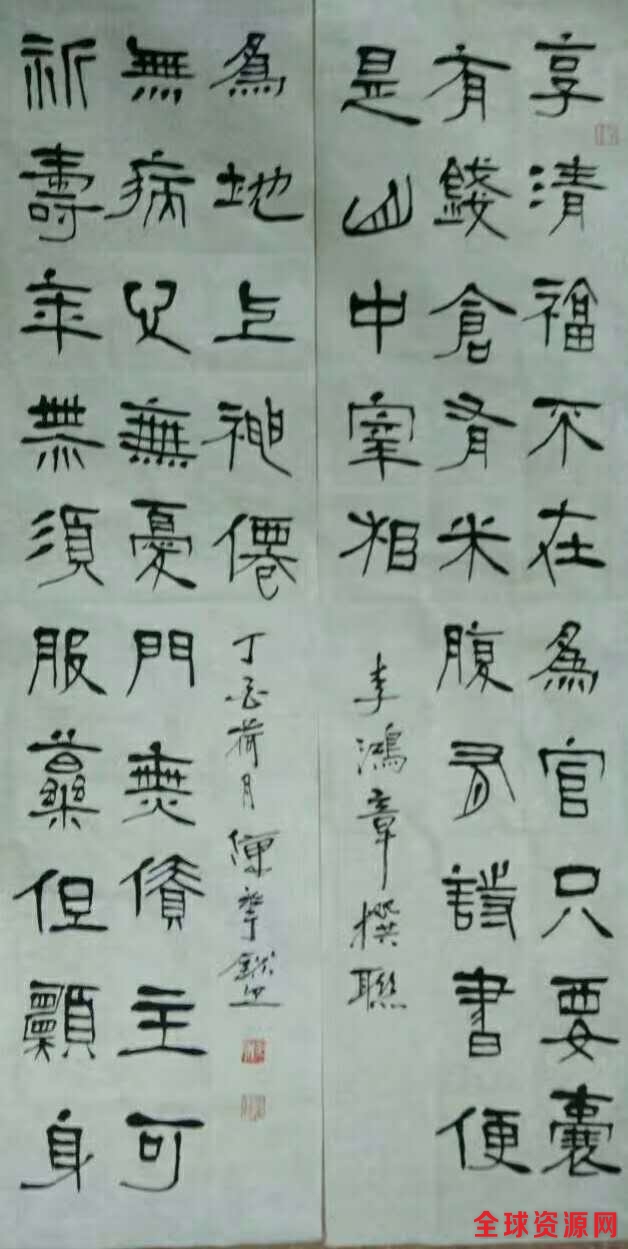 享清福不在為官只要囊
有錢倉有米腹有詩書便
是山中宰相
李鴻章撰聯
祈壽年無須服藥但願身
無病心無憂門無債主可
為地上神僊
丁酉荷月陳
全球资源网